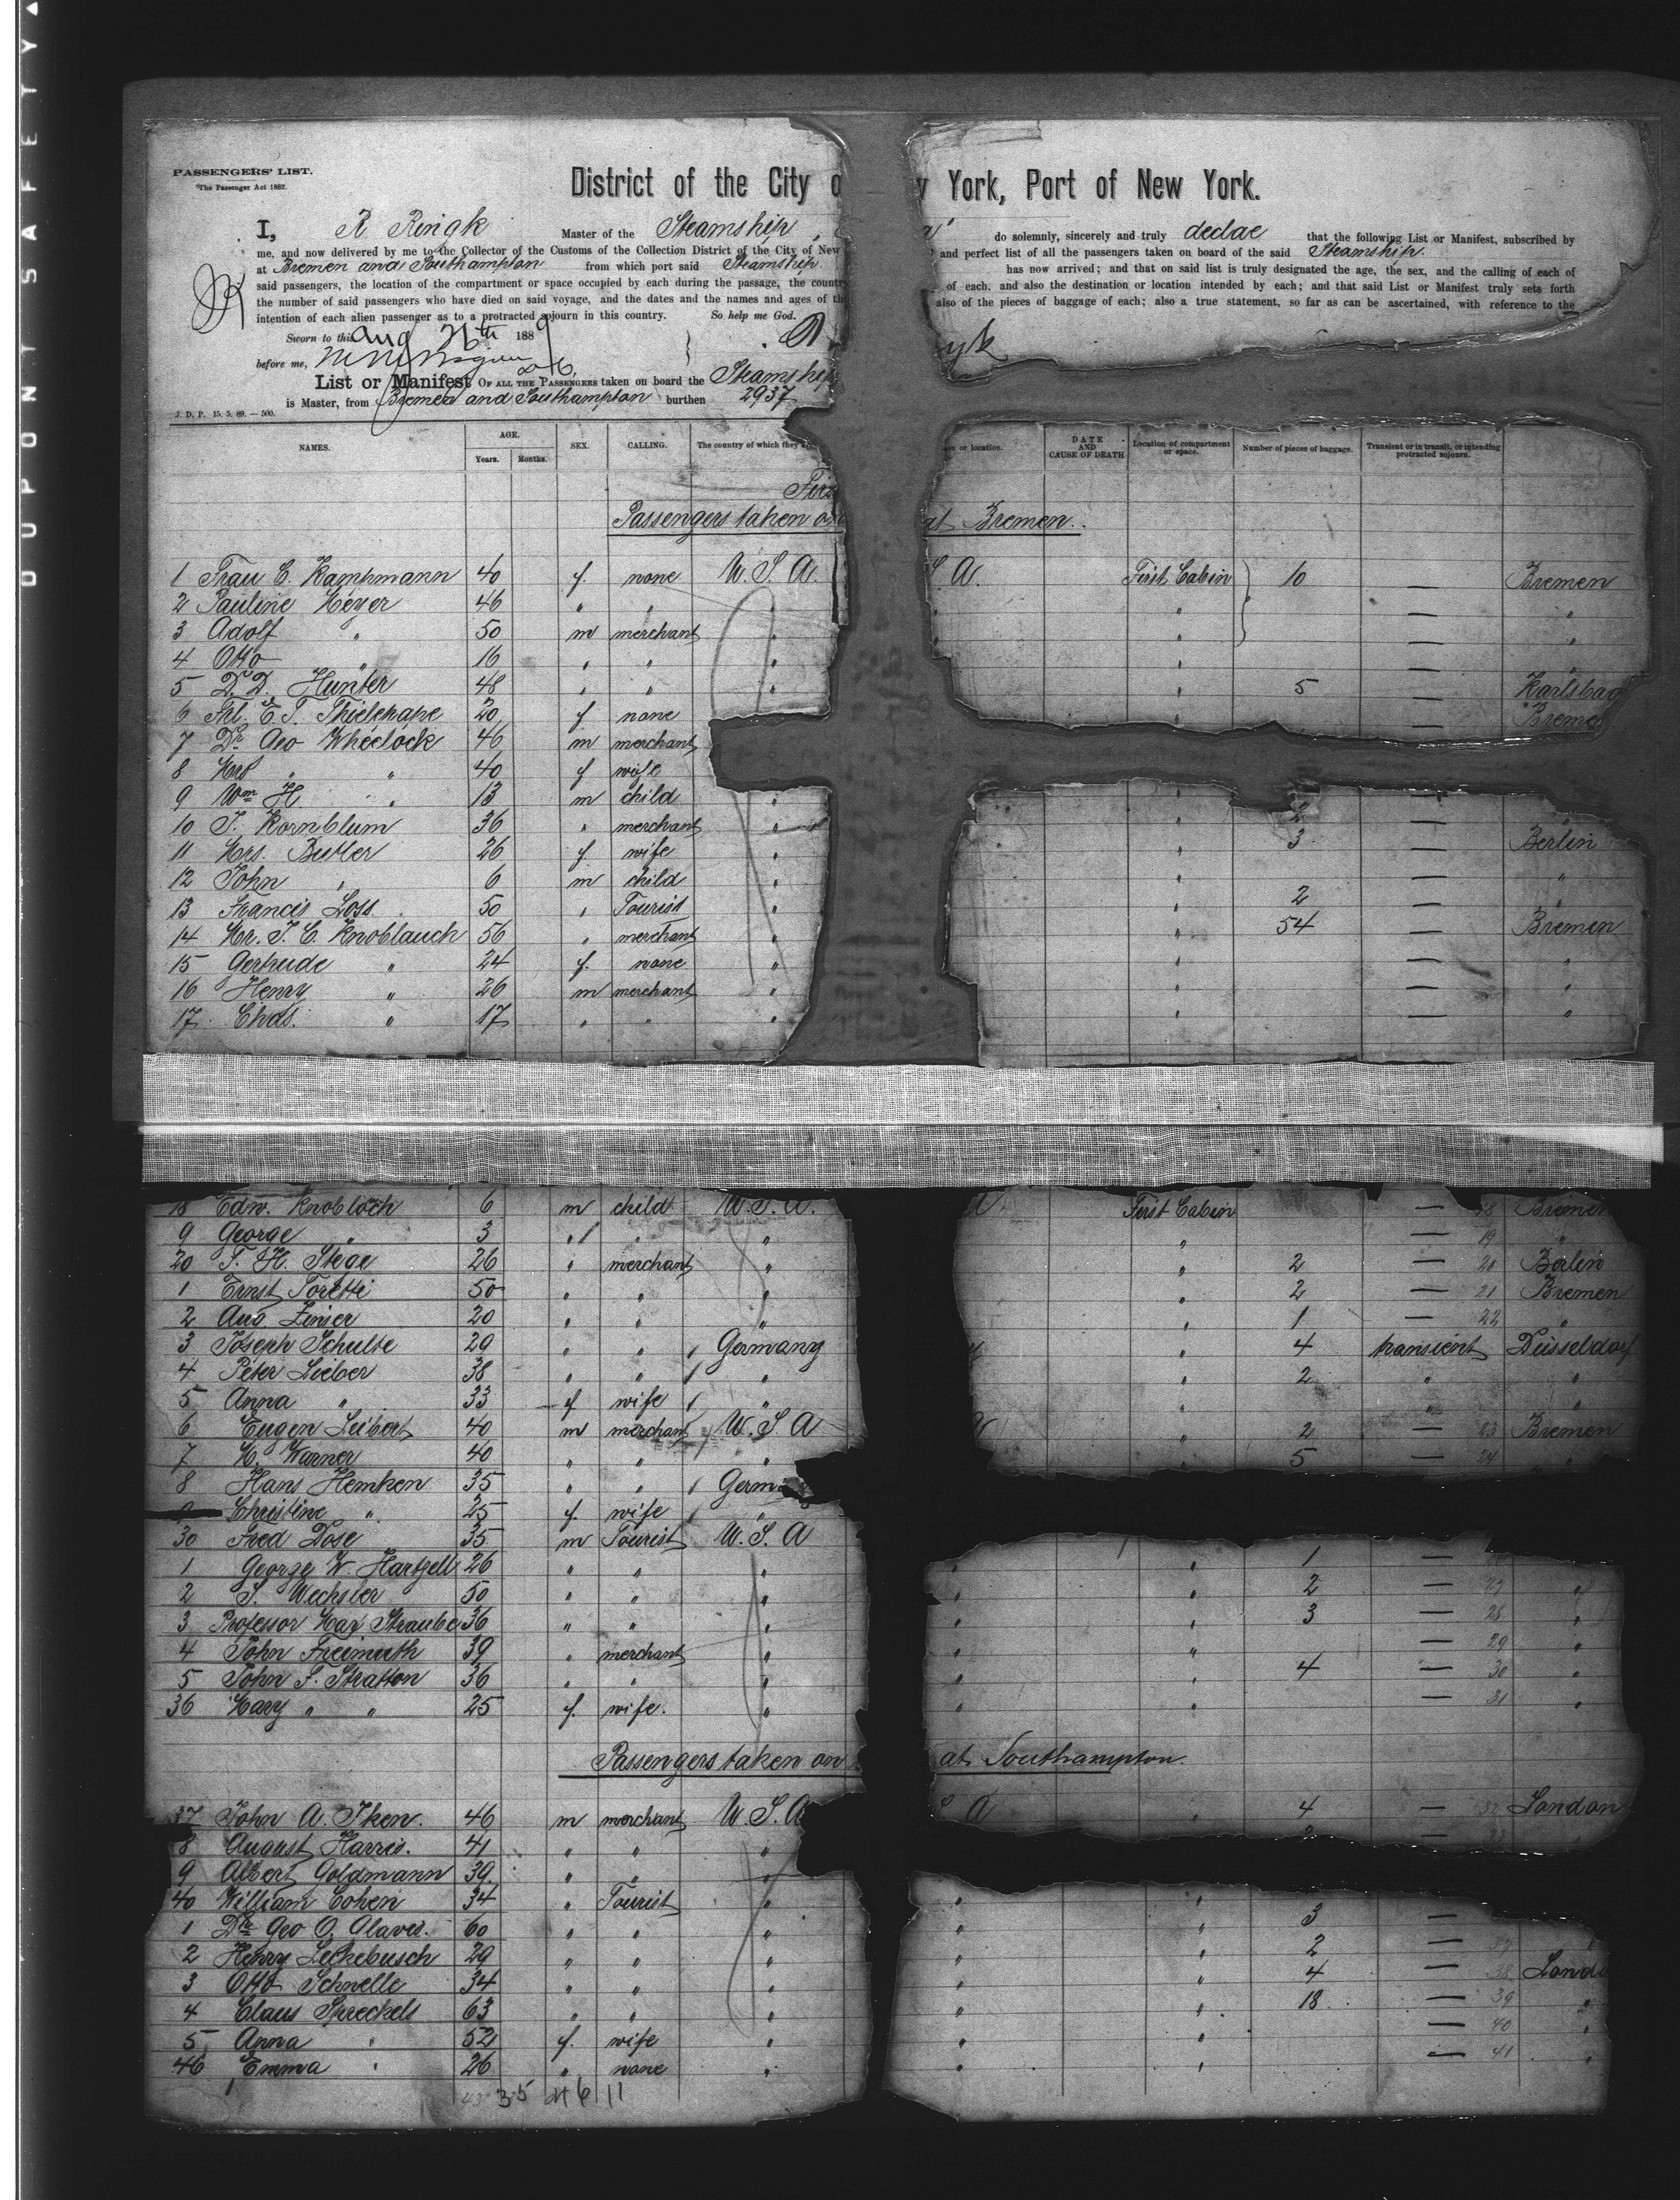 DUPONT SAFETY
PASSENGERS' LIST.
The Passenger Act 1882.
District of the City o y York, Port of New York.
I, R Ringk Master of the Steamship, do solemnly, sincerely and truly declae that the following List or Manifest, subscribed by
me, and now delivered by me to the Collector of the Customs of the Collection District of the City of New and perfect list of all the passengers taken on board of the said Steamship
at Bremen and Southampton from which port said Steamship has now arrived; and that on said list is truly designated the age, the sex, and the calling of each of
said passengers, the location of the compartment or space occupied by each during the passage, the country of each, and also the destination or location intended by each; and that said List or Manifest truly sets forth
the number of said passengers who have died on said voyage, and the dates and the names and ages of th also of the pieces of baggage of each; also a true statement, so far as can be ascertained, with reference to the
intention of each alien passenger as to a protracted sojourn in this country. So help me God.
Sworn to this Aug 26th 1889
before me,
List or Manifest OF ALL THE PASSENGERS taken on board the Steamship
is Master, from Bremen and Southampton burthen 2937
J. D. P. 15. 5. 89. — 500.
NAMES. AGE. Years. Months. SEX. CALLING. The country of which they or location. DATE AND CAUSE OF DEATH Location of compartment or space. Number of pieces of baggage. Transient or in transit, or intending protracted sojourn.
Firs
Passengers taken o at Bremen.
1 Frau C. Kamphmann 40 f. none U. S. A. S A. First Cabin 10 — Bremen
2 Pauline Meyer 46 " " " " " — "
3 Adolf " 50 m merchant " " — "
4 Otto " 16 " " " " — "
5 D. D. Hunter 48 " " " " 5 — Karlsbad
6 Frl. E. T. Thielepape 20 f none — Breme
7 Dr Geo Wheelock 46 m merchant
8 Mrs " " 40 f wife
9 Wm H " 13 m child " " —
10 J. Kornblum 36 " merchant " " 2 — "
11 Mrs. Butler 26 f. wife " " 3 — Berlin
12 John " 6 m child " " — "
13 Francis Loss. 50 " Tourist " " 2 — "
14 Mr. J. C. Knoblauch 56 " merchant " " 54 — Bremen
15 Gertrude " 24 f. none " " — "
16 Henry " 26 m merchant " " — "
17 Chas. " 17 " " " " — "
18 Edw. Knobloch 6 m child U. S. A. A First Cabin — 18 Bremen
9 George " 3 " " " " — 19 "
20 F. H. Stege 26 " merchant " " 2 — 20 Berlin
1 Ernst Toretti 50 " " " " 2 — 21 Bremen
2 Aug Zinser 20 " " " " 1 — 22 "
3 Joseph Schulte 29 " " Germany y " 4 transient Düsseldorf
4 Peter Lieber 38 " " " " 2 " "
5 Anna " 33 f wife " " " "
6 Eugen Leibert 40 m merchant U. S A " 2 — 23 Bremen
7 H. Warner 40 " " " " 5 — 24 "
8 Hans Hemken 35 " " Germ
9 Christine " 25 f. wife "
30 Fred Dose 35 m Tourist U. S. A
1 George W. Hartzell 26 " " " " " 1 —
2 S. Wechsler 50 " " " " " 2 — 27 "
3 Professor Max Straube 36 " " " " " 3 — 28 "
4 John Freimuth 39 " merchant " " " — 29 "
5 John F. Stratton 36 " " " " " 4 — 30 "
36 Mary " " 25 f. wife. " " " — 31 "
Passengers taken on at Southampton.
37 John A. Iken. 46 m merchant U. S. A S A " 4 — 32 London
8 August Harris. 41 " " " — 33 "
9 Albert Goldmann 39 " " "
40 William Cohen 34 " Tourist " " "
1 Dr. Geo O. Glavis. 60 " " " " " 3 —
2 Henry Leckebusch 29 " " " " " 2 — 37
3 Otto Schnelle 34 " " " " " 4 — 38 Lond
4 Claus Spreckels 63 " " " " " 18 — 39 "
5 Anna " 52 f. wife " " " — 40 "
46 Emma " 26 " none " " " — 41 "
35 11